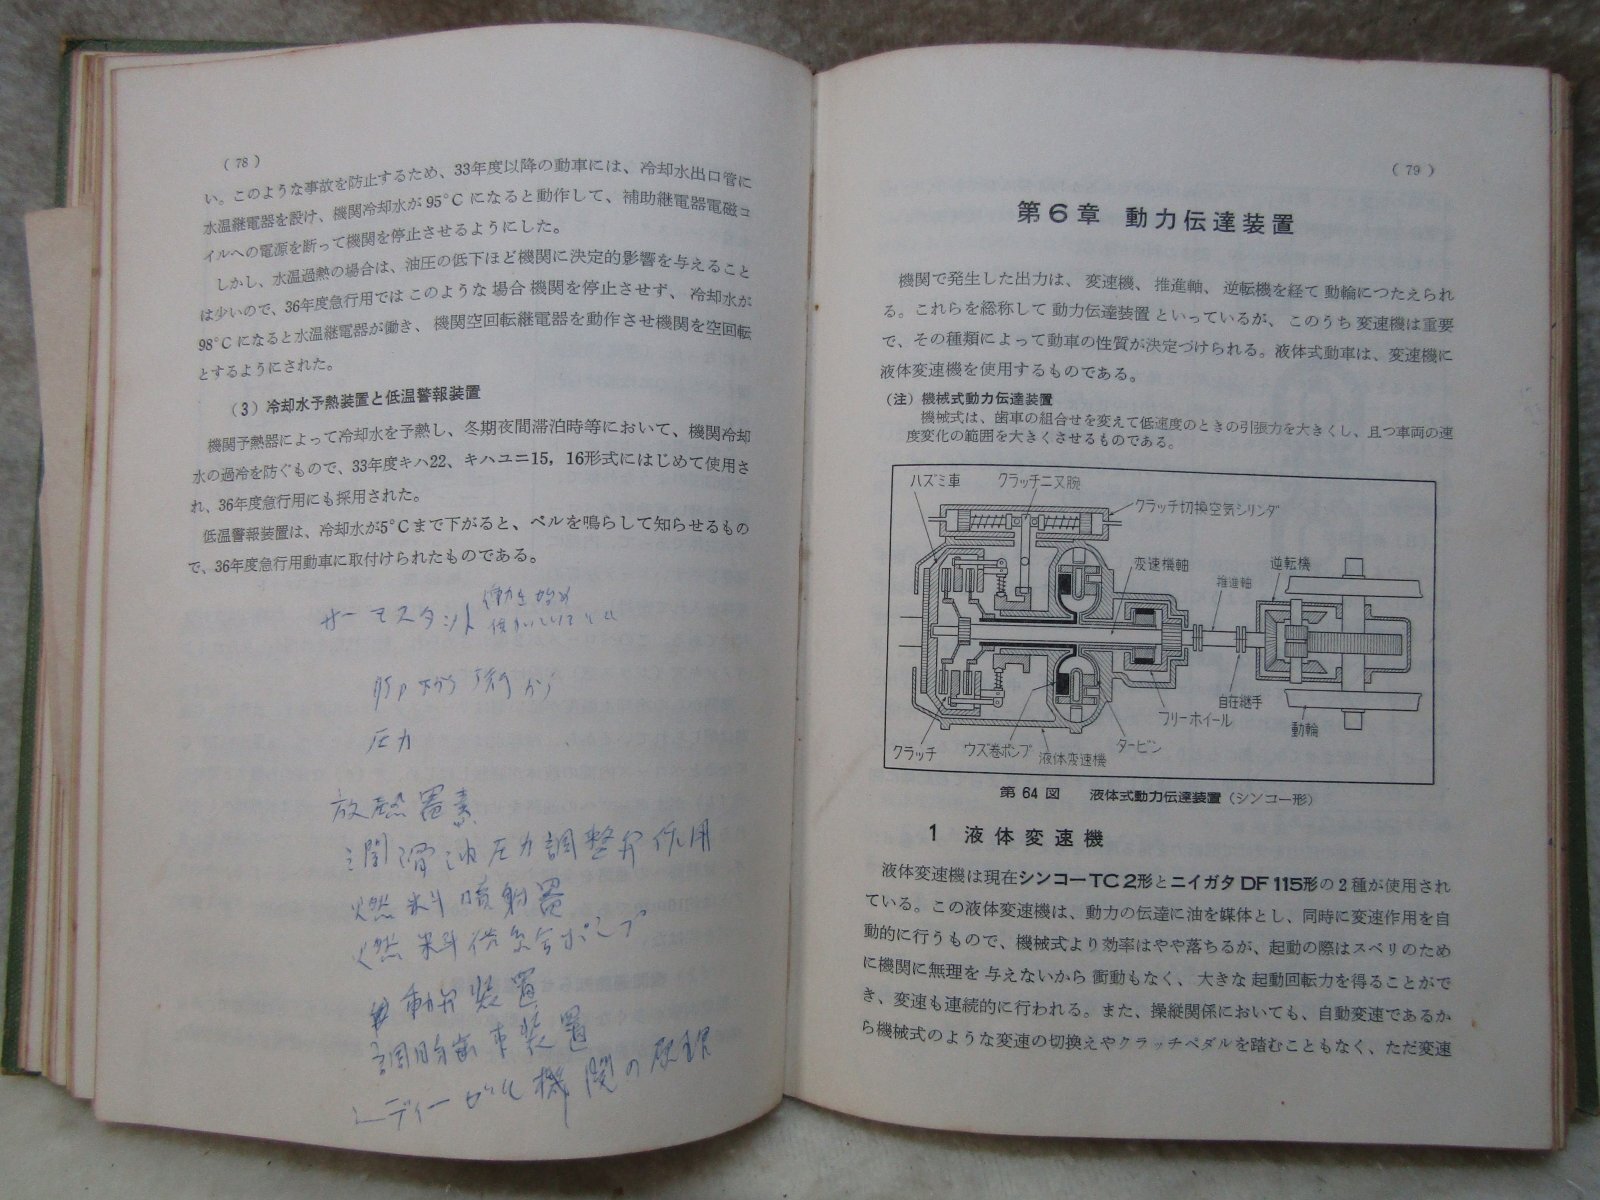 ( 78 )
い。このような事故を防止するため、33年度以降の動車には、冷却水出口管に
水温継電器を設け、機関冷却水が95°Cになると動作して、補助継電器電磁コ
イルへの電源を断って機関を停止させるようにした。
しかし、水温過熱の場合は、油圧の低下ほど機関に決定的影響を与えること
は少いので、36年度急行用ではこのような場合機関を停止させず、冷却水が
98°Cになると水温継電器が働き、機関空回転継電器を動作させ機関を空回転
とするようにされた。
(3) 冷却水予熱装置と低温警報装置
機関予熱器によって冷却水を予熱し、冬期夜間滞泊時等において、機関冷却
水の過冷を防ぐもので、33年度キハ22、キハユニ15，16形式にはじめて使用さ
れ、36年度急行用にも採用された。
低温警報装置は、冷却水が5°Cまで下がると、ベルを鳴らして知らせるもの
で、36年度急行用動車に取付けられたものである。
サーモスタット
圧力
放熱器素
潤滑油圧力調整弁作用
燃料噴射器
燃料供給ポンプ
動弁装置
調時歯車装置
ディーゼル機関の原理
( 79 )
第6章 動力伝達装置
機関で発生した出力は、変速機、推進軸、逆転機を経て動輪につたえられ
る。これらを総称して動力伝達装置といっているが、このうち変速機は重要
で、その種類によって動車の性質が決定づけられる。液体式動車は、変速機に
液体変速機を使用するものである。
(注) 機械式動力伝達装置
機械式は、歯車の組合せを変えて低速度のときの引張力を大きくし、且つ車両の速
度変化の範囲を大きくさせるものである。
ハズミ車
クラッチ二又腕
クラッチ切換空気シリンダ
変速機軸
推進軸
逆転機
クラッチ
ウズ巻ポンプ
液体変速機
タービン
フリーホイール
自在継手
動輪
第 64 図 液体式動力伝達装置 (シンコー形)
1 液体変速機
液体変速機は現在シンコーTC2形とニイガタDF115形の2種が使用され
ている。この液体変速機は、動力の伝達に油を媒体とし、同時に変速作用を自
動的に行うもので、機械式より効率はやや落ちるが、起動の際はスベリのため
に機関に無理を与えないから衝動もなく、大きな起動回転力を得ることがで
き、変速も連続的に行われる。また、操縦関係においても、自動変速であるか
ら機械式のような変速の切換えやクラッチペダルを踏むこともなく、ただ変速